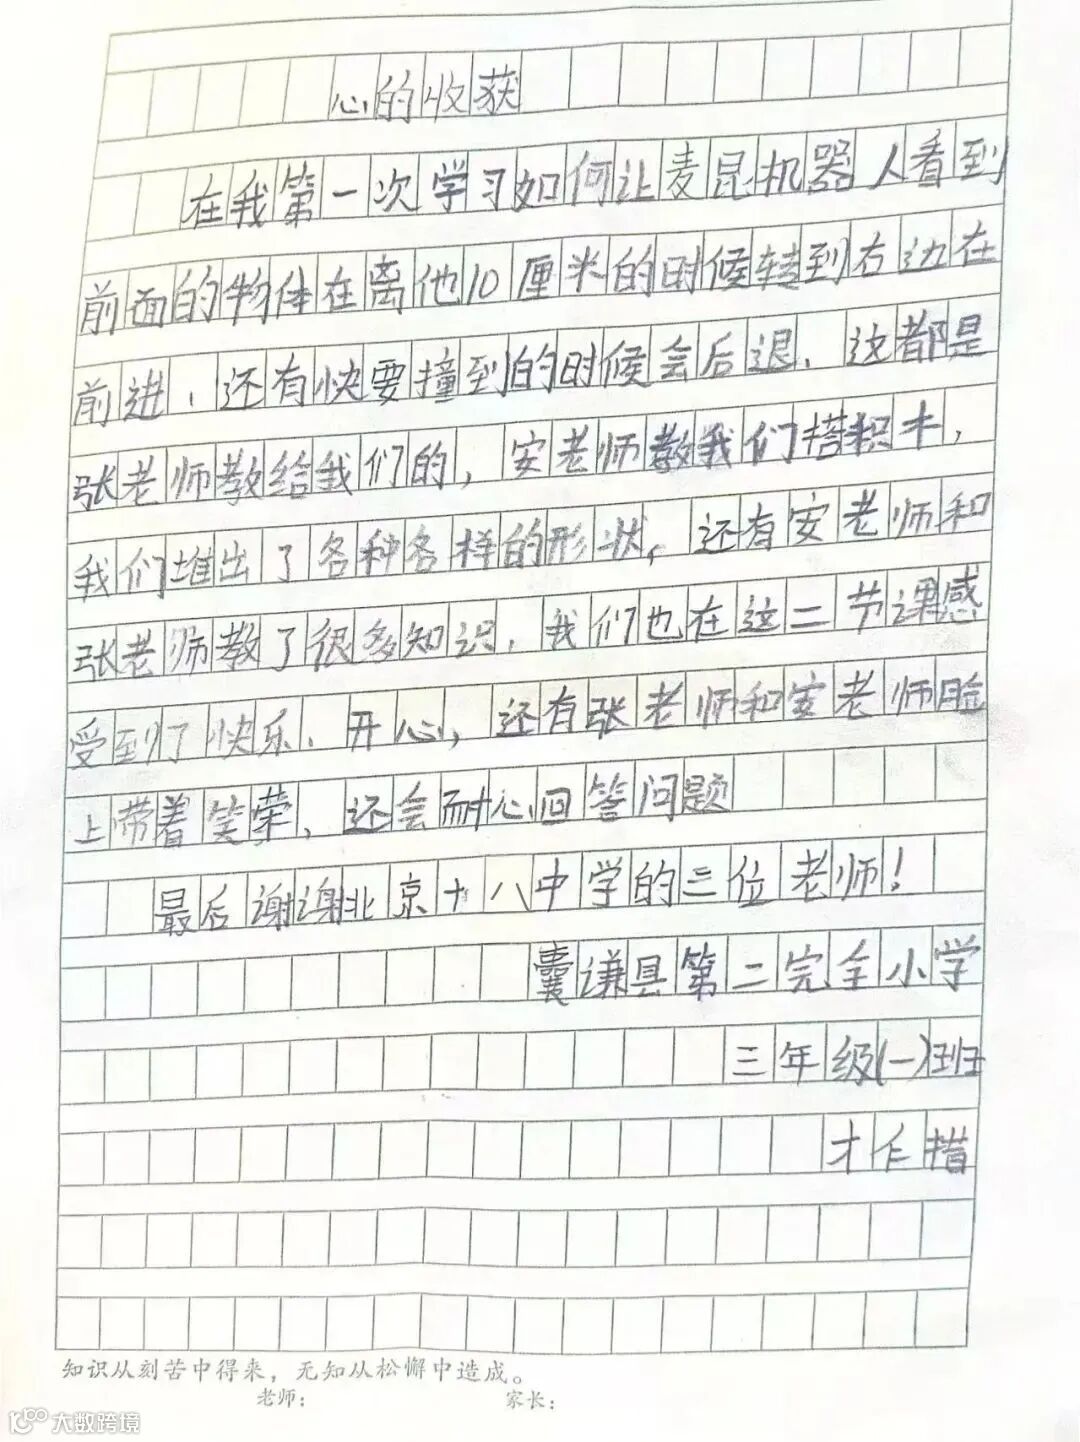 心的收获
在我第一次学习如何让麦昆机器人看到
前面的物体在离他10厘米的时候转到右边在
前进、还有快要撞到的时候会后退、这都是
张老师教给我们的，安老师教我们搭积木，
我们堆出了各种各样的形状，还有安老师和
张老师教了很多知识，我们也在这二节课感
受到了快乐、开心，还有张老师和安老师脸
上带着笑荣、还会耐心回答问题
最后谢谢北京十八中学的三位老师！
囊谦县第二完全小学
三年级(一)班
才仁措
知识从刻苦中得来，无知从松懈中造成。
老师： 家长：
大数跨境